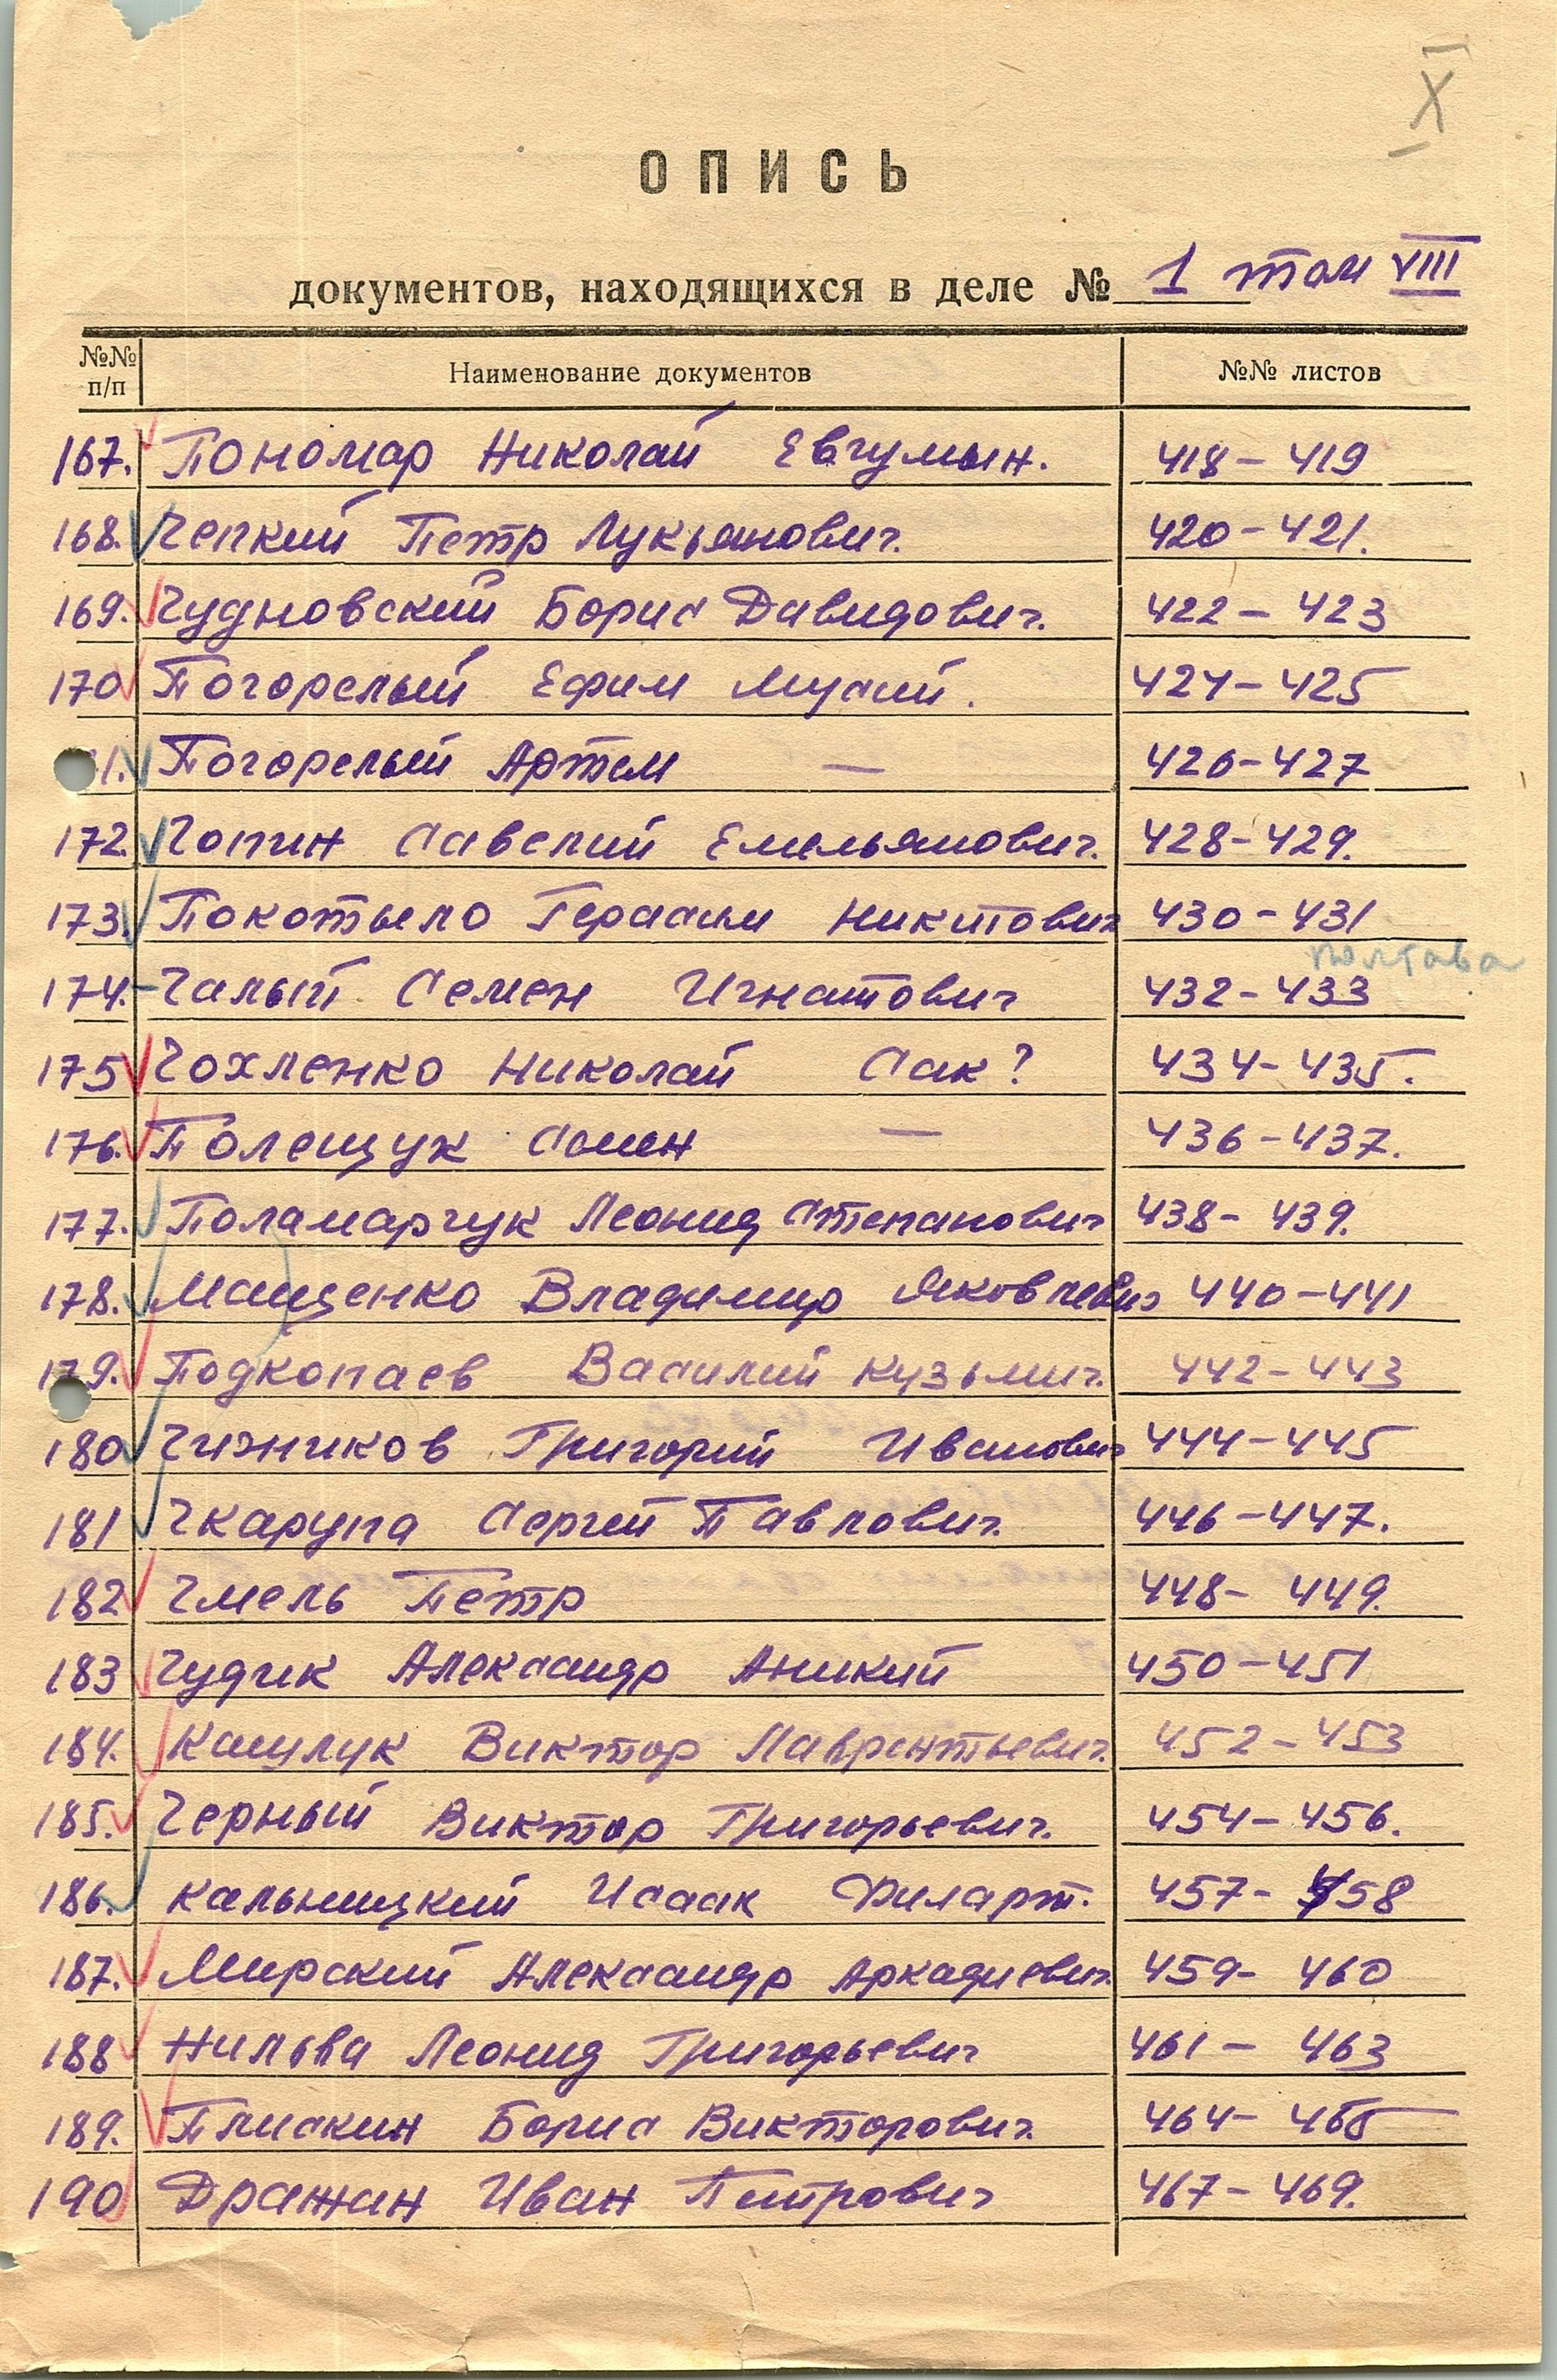 X
ОПИСЬ
документов, находящихся в деле № 1 том VIII
№№ п/п Наименование документов №№ листов
167. Пономар Николай Евгумын. 418-419
168. Чепкий Петр Лукьянович. 420-421.
169. Чудновский Борис Давидович. 422-423
170 Погорелый Ефим Мусий. 424-425
1. Погорелый Артем — 426-427
172. Чопин Савелий Емельянович. 428-429.
173. Покотыло Герасим Никитович 430-431
полтава
174. Чалый Семен Игнатович 432-433
175 Чохленко Николай Сак? 434-435.
176. Полещук Семен — 436-437.
177. Паламарчук Леонид Степанович 438-439.
178. Мащенко Владимир Яковлевич 440-441
179. Подкопаев Василий Кузьмич. 442-443
180 Чижиков Григорий Иванович 444-445
181 Чкарупа Сергей Павлович. 446-447.
182 Чмель Петр 448-449.
183 Чудик Александр Аникий 450-451
184. Кашлук Виктор Лаврентьевич. 452-453
185. Черный Виктор Григорьевич. 454-456.
186. Кальницкий Исаак Филарт. 457-458
187. Мирский Александр Аркадиевич. 459-460
188 Нильва Леонид Григорьевич 461-463
189. Плискин Борис Викторович. 464-466
190 Дражан Иван Петрович 467-469.